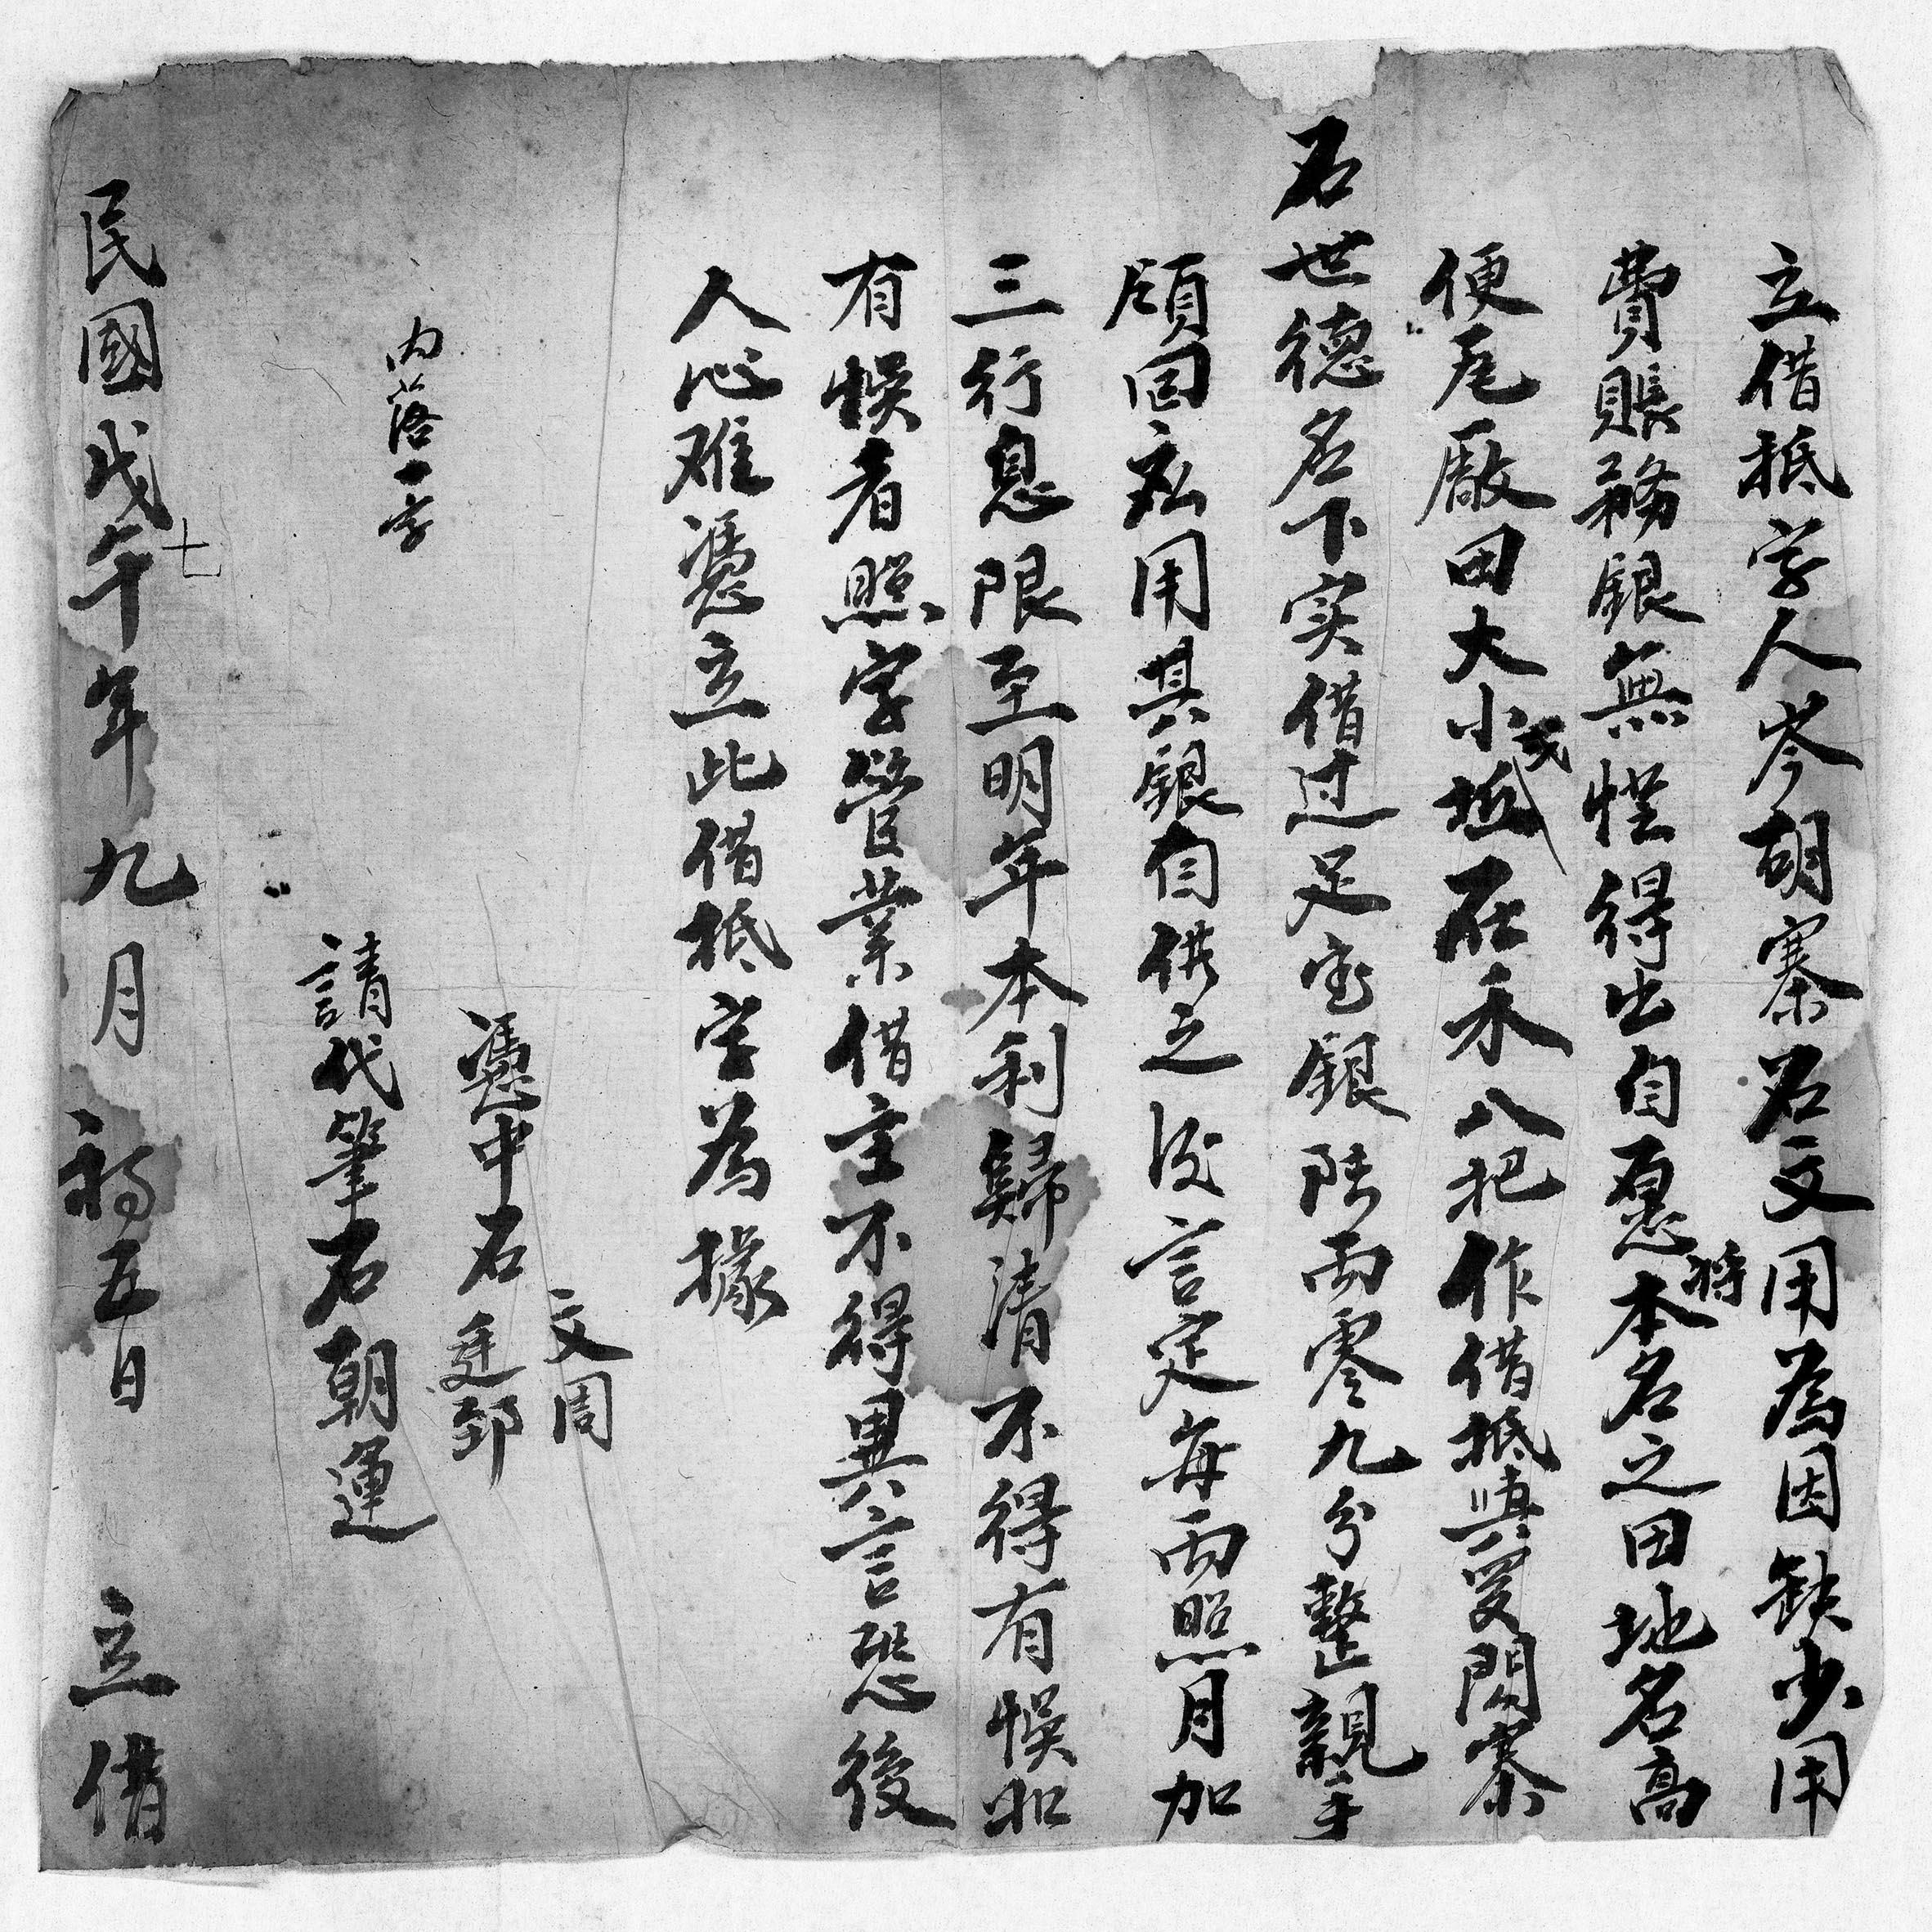 立借抵字人岑胡寨石文用為因缺少用
費賬務銀無怪得出自愿將本名之田地名高
便尾厰田大小式坵在禾八把作借抵與受閔寨
石世德名下实借过足宝銀陆両零九分整親手
領回應用其銀自借之後言定每両照月加
三行息限至明年本利歸清不得有悞如
有悞者照字管業借主不得異言恐後
人心难憑立此借抵字為據
文周
憑中石廷郅
内落一字
請代筆石朝運
民國戊午七年九月初五日 立借